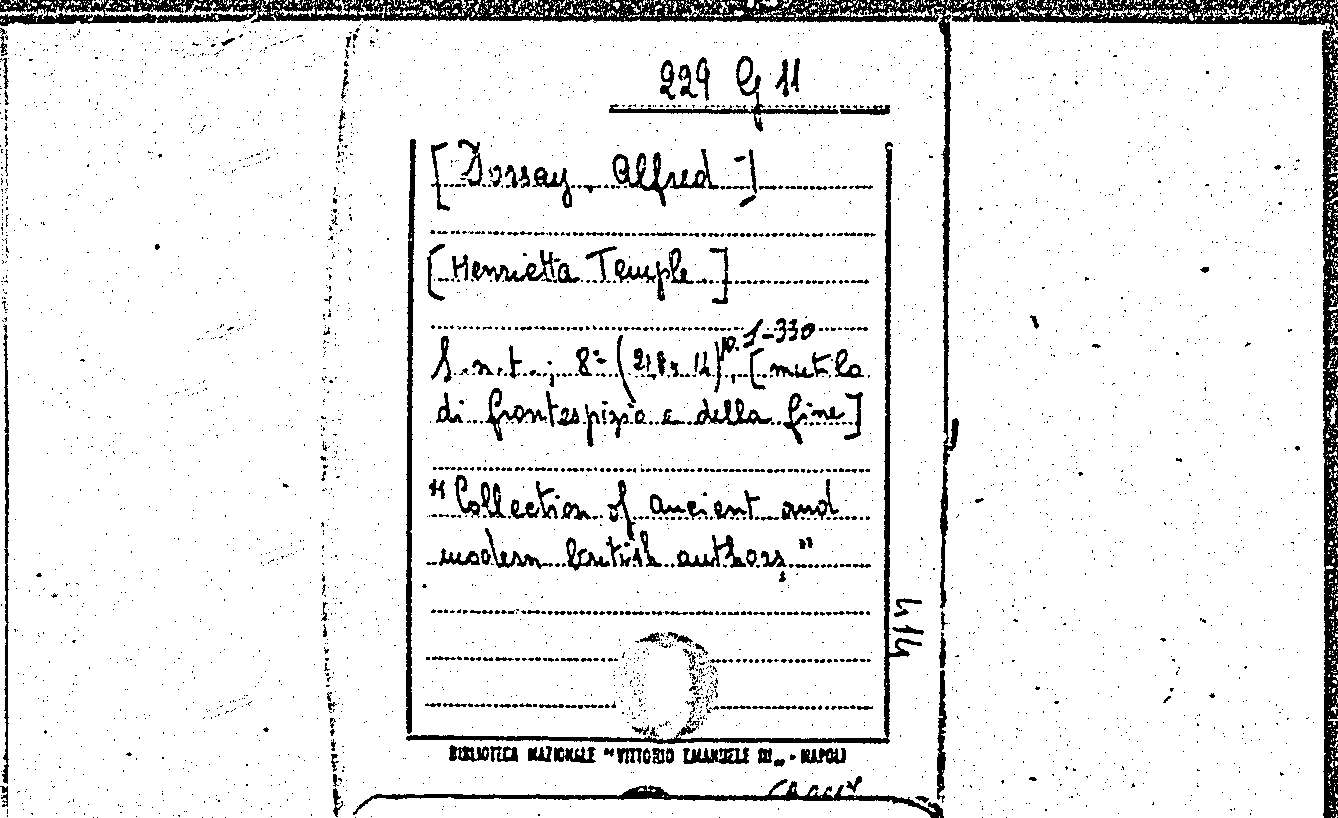 229 G 11
[Dorsay, Alfred -]
[Henrietta Temple]
p. 1-330
S.n.t.; 8º (21,8x14), [mutilo
di frontespizio e della fine]
"Collection of ancient and
modern british authors,"
414
BIBLIOTECA NAZIONALE "VITTORIO EMANUELE III„ - NAPOLI